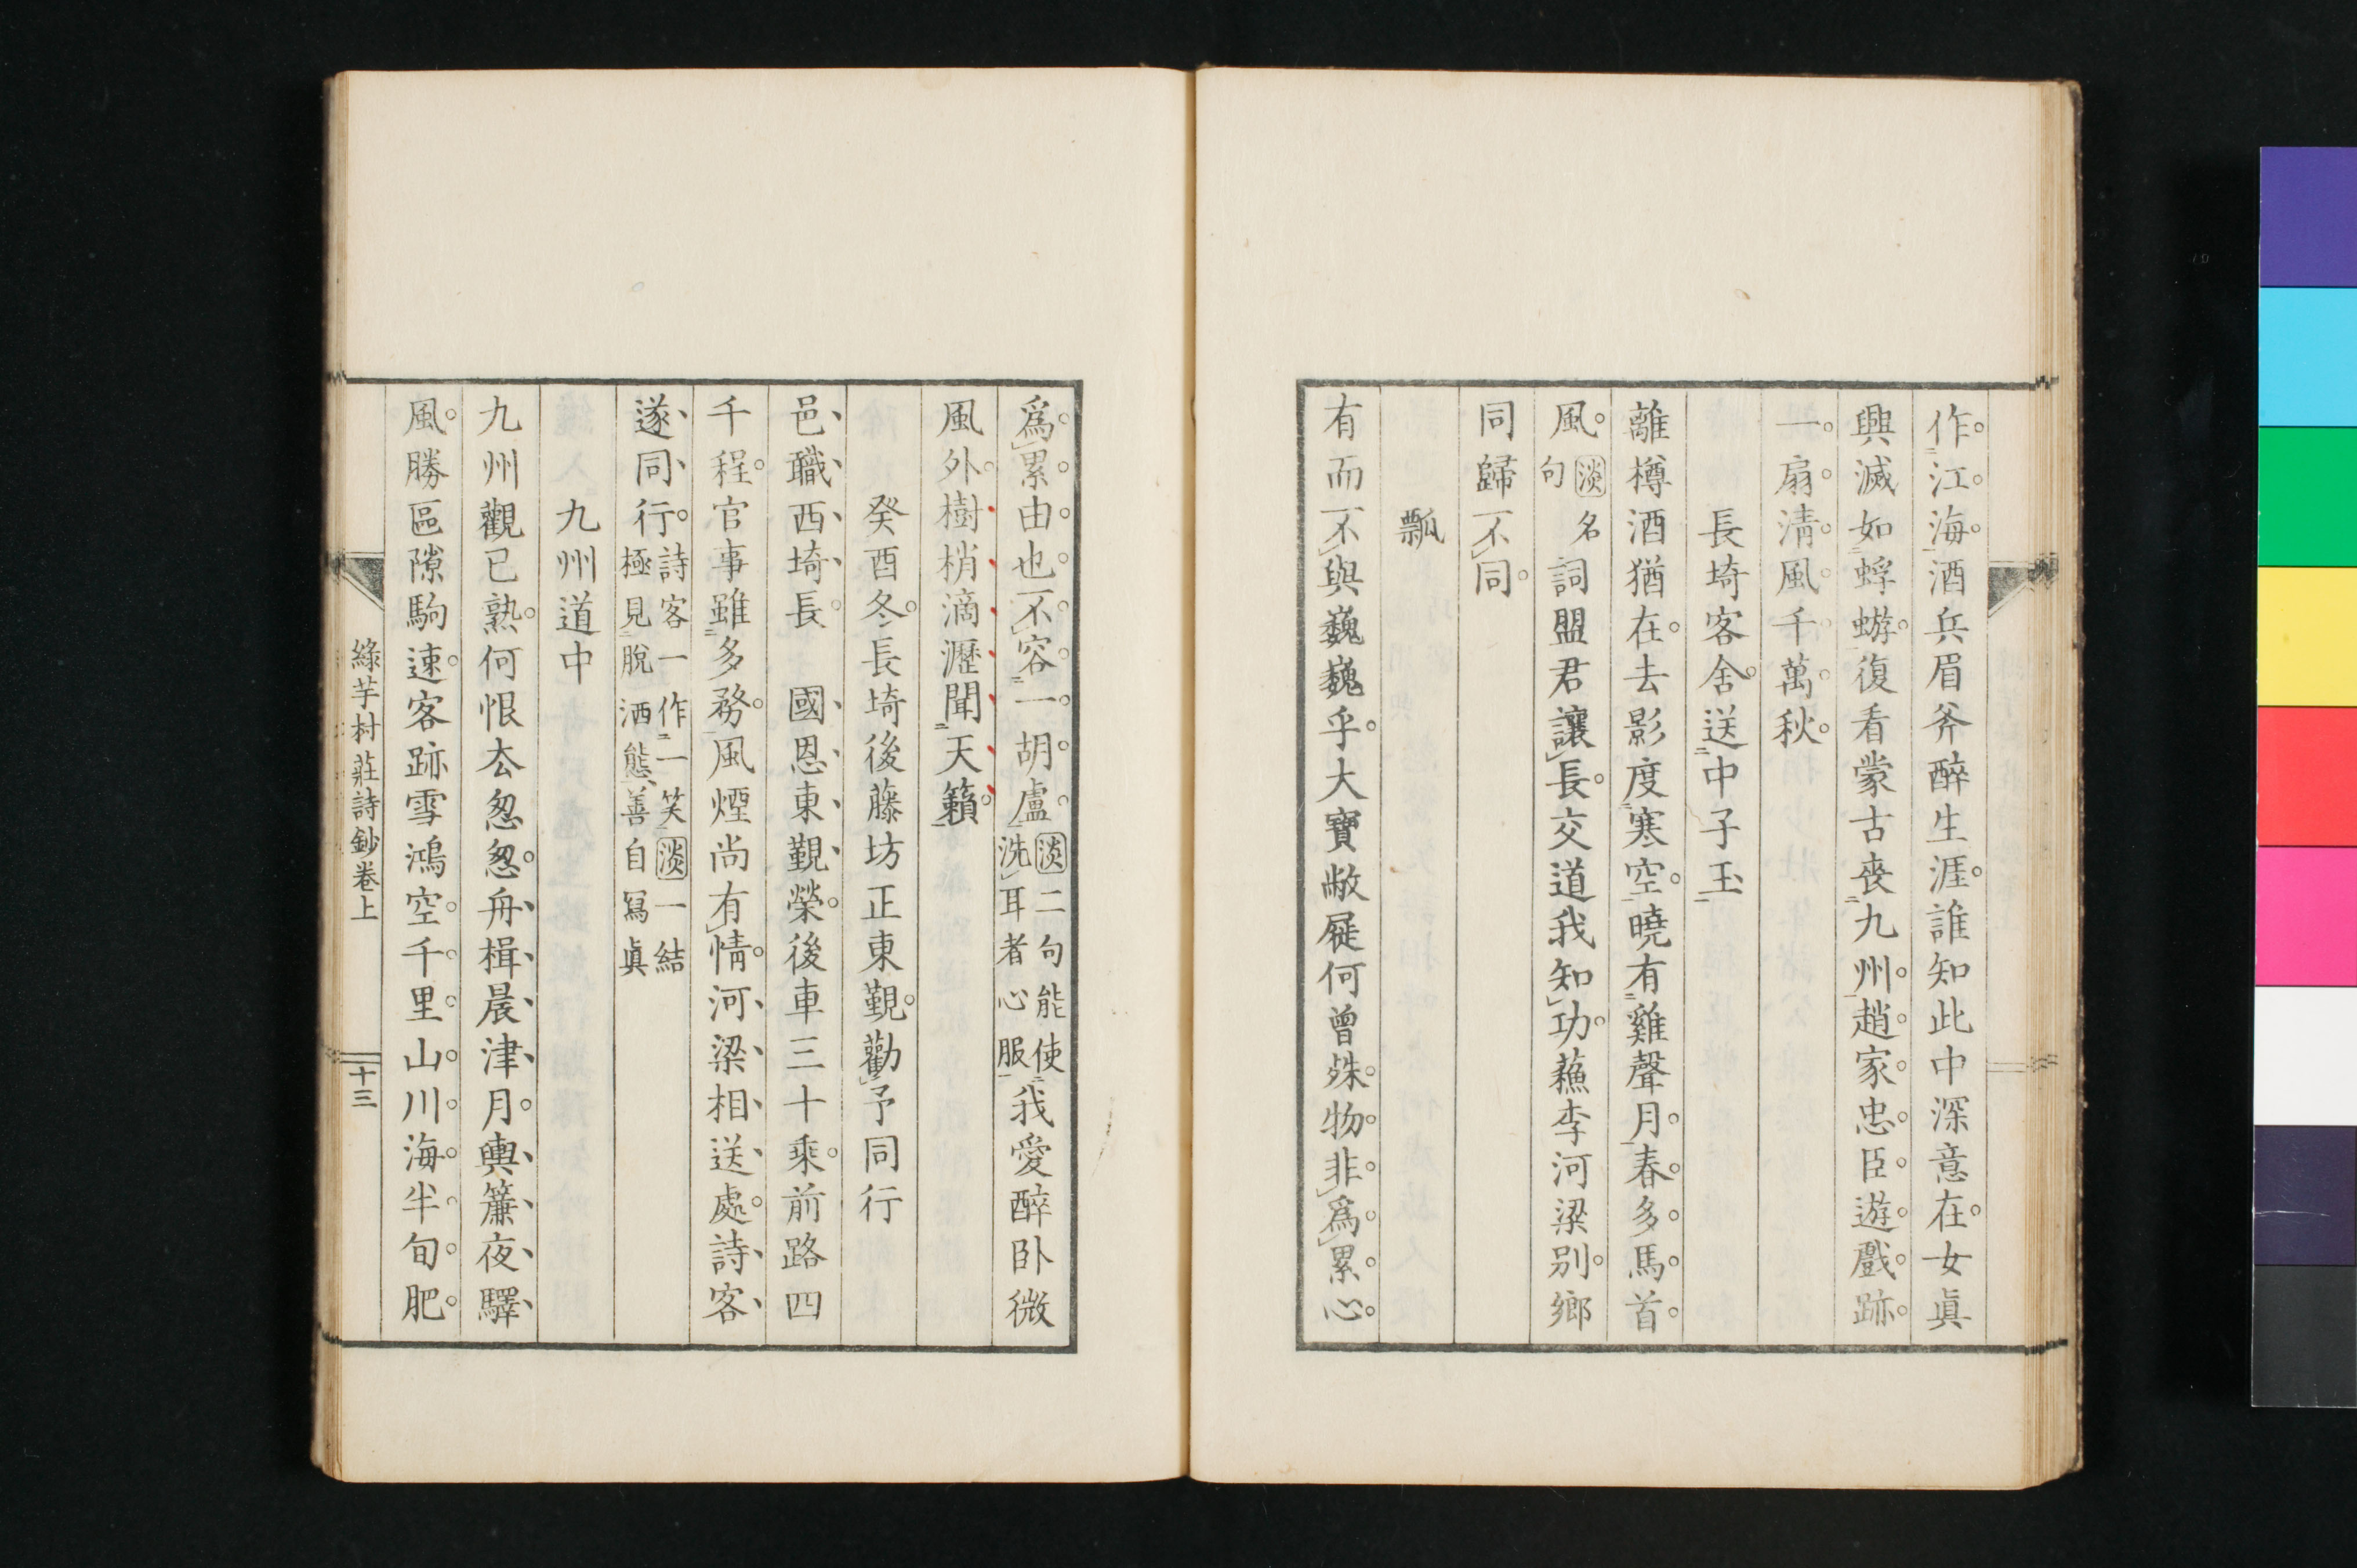 作江海酒兵眉斧醉生涯誰知此中深意在女眞
興滅如蜉蝣復看蒙古喪九州趙家忠臣遊戲跡
一扇淸風千萬秋
長埼客舍送中子玉
離樽酒猶在去影度寒空曉有雞聲月春多馬首
風淡名句詞盟君讓長交道我知功蘓李河梁別鄕
同歸不同
瓢
有而不與巍巍乎大寶敝屣何曾殊物非爲累心
爲累由也不容一胡盧淡二句能使洗耳者心服我愛醉卧微
風外樹梢滴瀝聞天籟
癸酉冬長埼後藤坊正東覲勸予同行
邑職西埼長 國恩東覲榮後車三十乘前路四
千程官事雖多務風煙尚有情河梁相送處詩客
遂同行詩客一作一笑淡一結極見脫洒態善自寫眞
九州道中
九州觀已熟何恨太怱怱舟楫晨津月輿簾夜驛
風勝區隙駒速客跡雪鴻空千里山川海半旬肥
綠芋村莊詩鈔卷上 十三